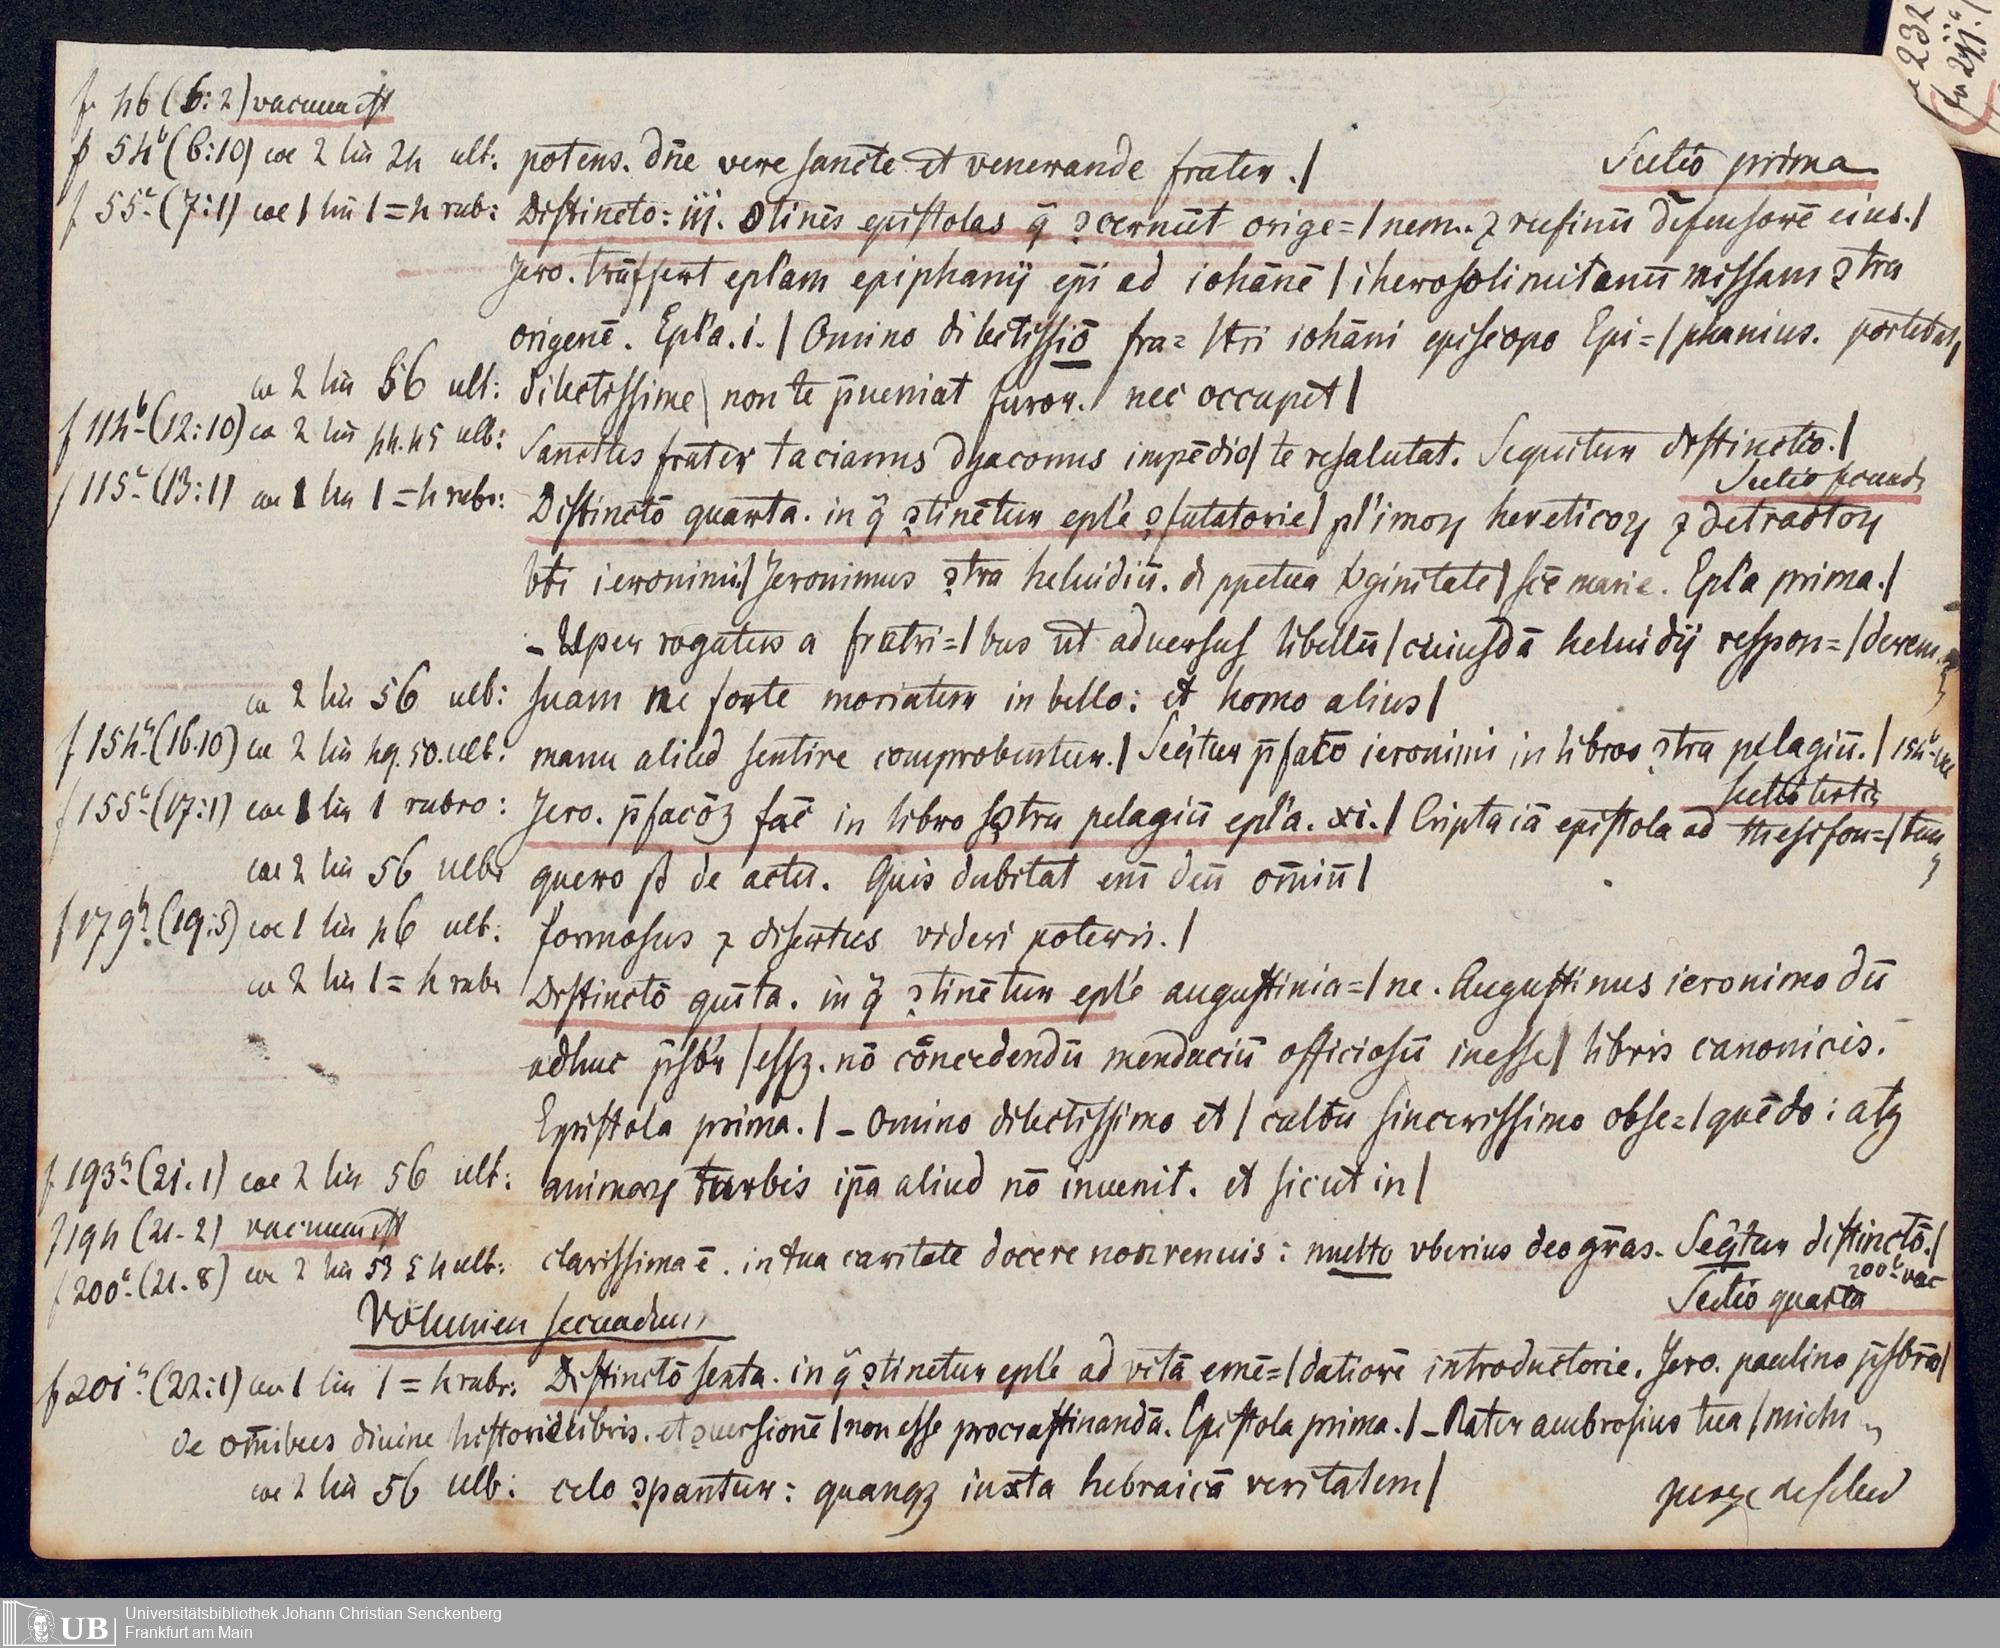 232
f 46 (6:2) vacuum est
f 54b (6:10) coe 2 lin 24 ult: potens. dn̄e vere sancte et venerande frater./ Sectio prima
f 55a (7:1) coe 1 lin 1=4 rub: Distincto: iij. ↄtinēs epistolas q̄ ↄcernūt orige=/nem. ⁊ rufinū dēfensorē eius./
Jero. trāsfert epl'am epiphanij ep̄i ad iohānē/iherosolimitanū missam ↄtra
origenē. Epl'a. i./ Omino dilectissīō fra=/tri iohāni episcopo Epi=/phanius.
coe 2 lin 56 ult: dilectissime non te p̄ueniat furor. nec occupet/
f 114b (12:10) coe 2 lin 44.45 ult: Sanctus frater tacianus dyaconus impēdio/te resalutat. Sequitur distinctio./
Sectio secunda
f 115a (13:1) coe 1 lin 1=4 rubr: Distinctō quarta. in q̄ ↄtinētur epl'e ↄfutatorie/pl'imoꝝ hereticoꝝ ⁊ detractoꝝ
bt̄i ieronimi/Jeronimus ↄtra heluidiū. d' ppetua v̓ginitate/scē marie. Epl'a prima./
_Uper rogatus a fratri=/bus ut aduersus libellū/cuiusdā heluidij respon=/derem
coe 2 lin 56 ult: suam ne forte moriatur in bello: et homo alius/
f 154b (16.10) coe 2 lin 49.50.ult: manu aliud sentire comprobentur./Seq̄tur p̄fatō ieronimi in libros ↄtra pelagiū./
Sectio tertia
f 155a (17:1) coe 1 lin 1 rubro: Jero. p̄facōꝫ fac̄ in libro sↄtra pelagiū epl'a. xi./Cripta iā epistola ad thesifon=/tem
coe 2 lin 56 ulbr quero ꝓ de actu. Quis dubitat em̄ deū om̄iū/
f 179b (19:5) coe 1 lin 46 ult. formosus ⁊ disertus videri poteris./
coe 2 lin 1=4 rubr Distinctō quīta. in q̄ ↄtinētur epl'e augustinia=/ne. Augustinus ieronimo dū
adhuc p̄sb'r/essꝫ. nō cōncedendū mendaciū officiosū inesse/libris canonicis.
Epistola prima./_Omino dilectissimo et/cultu sincerissimo obse=/quēdo: atqꝫ
f 193a (21.1) coe 2 lin 56 ult: animoꝝ turbis ip̄a aliud nō inuenit. et sicut in/
f 194 (21.2) vacuum est
f 200a (21.8) coe 2 lin 53 54 ult: clarissima ē. in tua caritate docere non renuis: multo vberius deo grās. Seq̄tur distinctō./
200b vac
Volumen secundum Sectio quarta
f 201a (22:1) coe 1 lin 1=4 rubr: Distinctō sexta. in q̄ ↄtinetur epl'e ad vitā emē=/datiorē introductorie. Jero. paulino p̄sb'rō/
de om̄ibus diuine historie libris. et ↄuersionē/non esse procrastinandā. Epistola prima./_Rater ambrosius tua/michi
coe 2 lin 56 ulb: celo ↄpantur: quanqꝫ iuxta hebraicā veritatem/